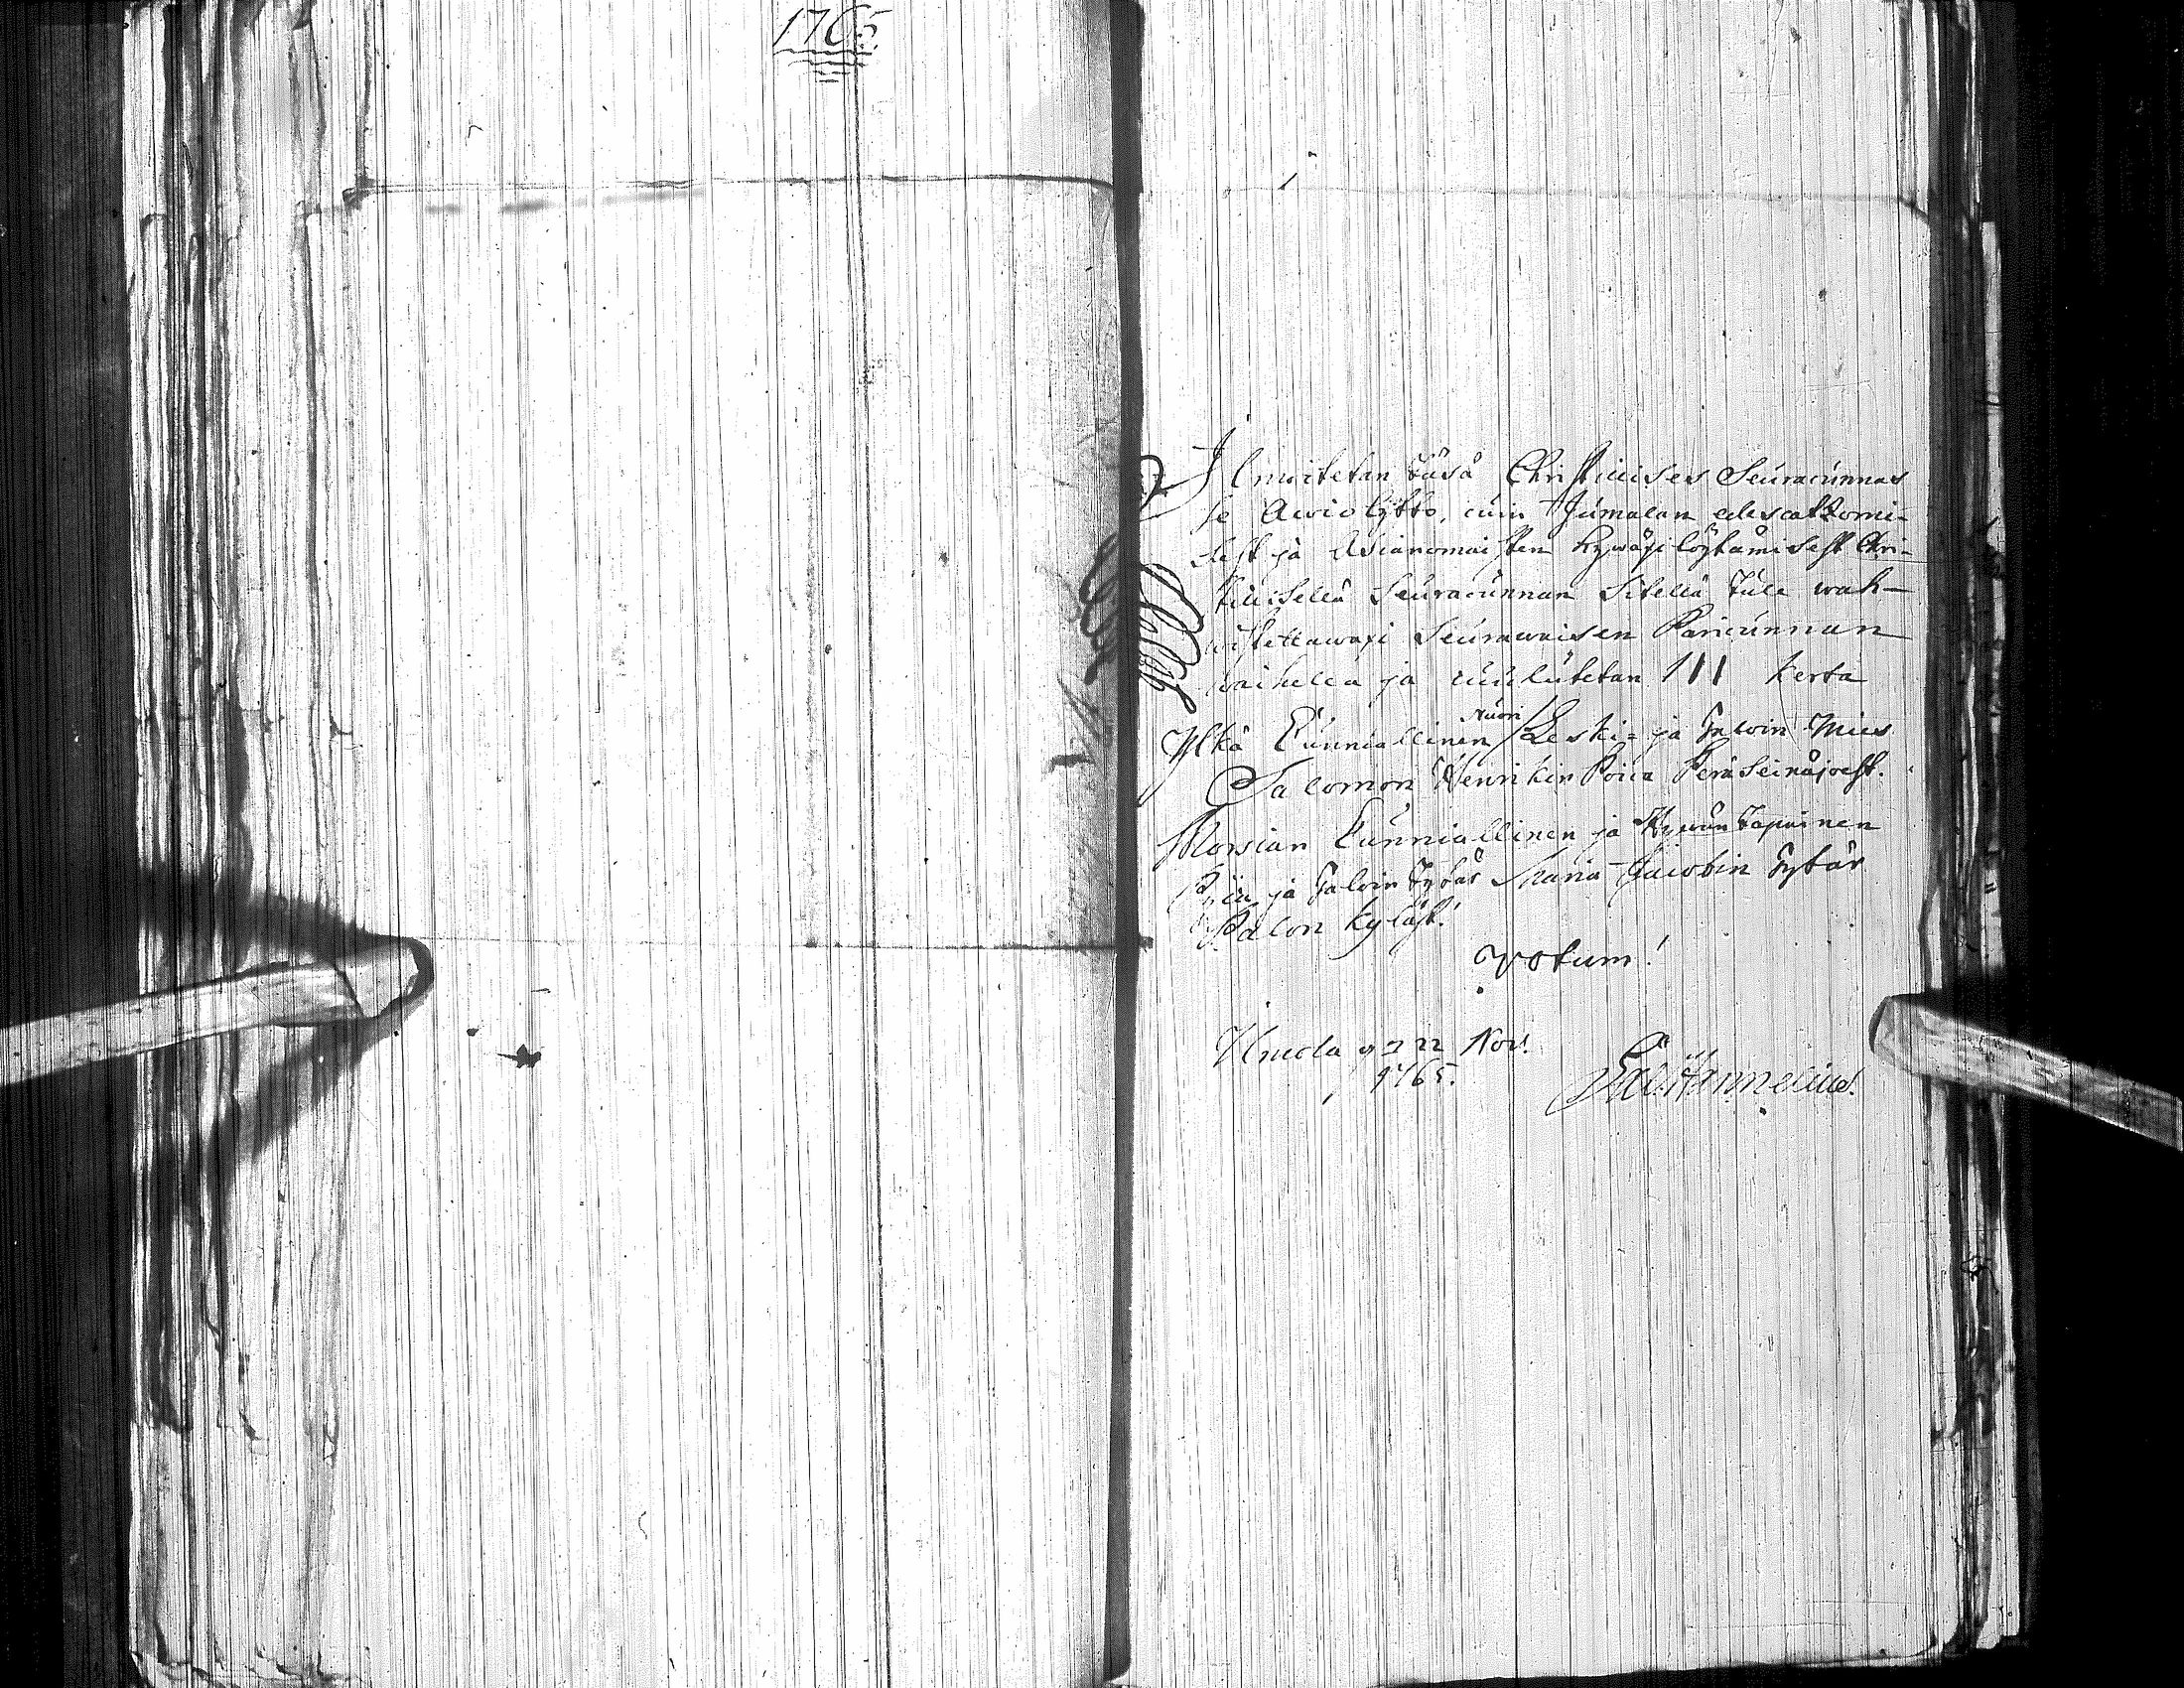 1765
Ilmoitetan täsä Christilises Seuracunnas
se Awio lijtto, cuin Jumalan edescatzomi-
sest ja Asianomaisten hywäxi löytämisest Chri-
stilisellä Seuracunnan Sitellä tule wah-
wistettawaxi Seurawaisen Paricunnan
wäihellä ja cuulutetan III kerta
Ylkä Cunniallinen Nuori Leski- ja Taloin Mies
Salomon Henrikin Poica Peräseinäjoest.
Morsian Cunniallinen ja Hywän tapainen
Pijca ja Taloin Tytär Maria Jacobin Tytär
Palon kyläst.
Votum!
Ilmola 22 Nov.
1765.